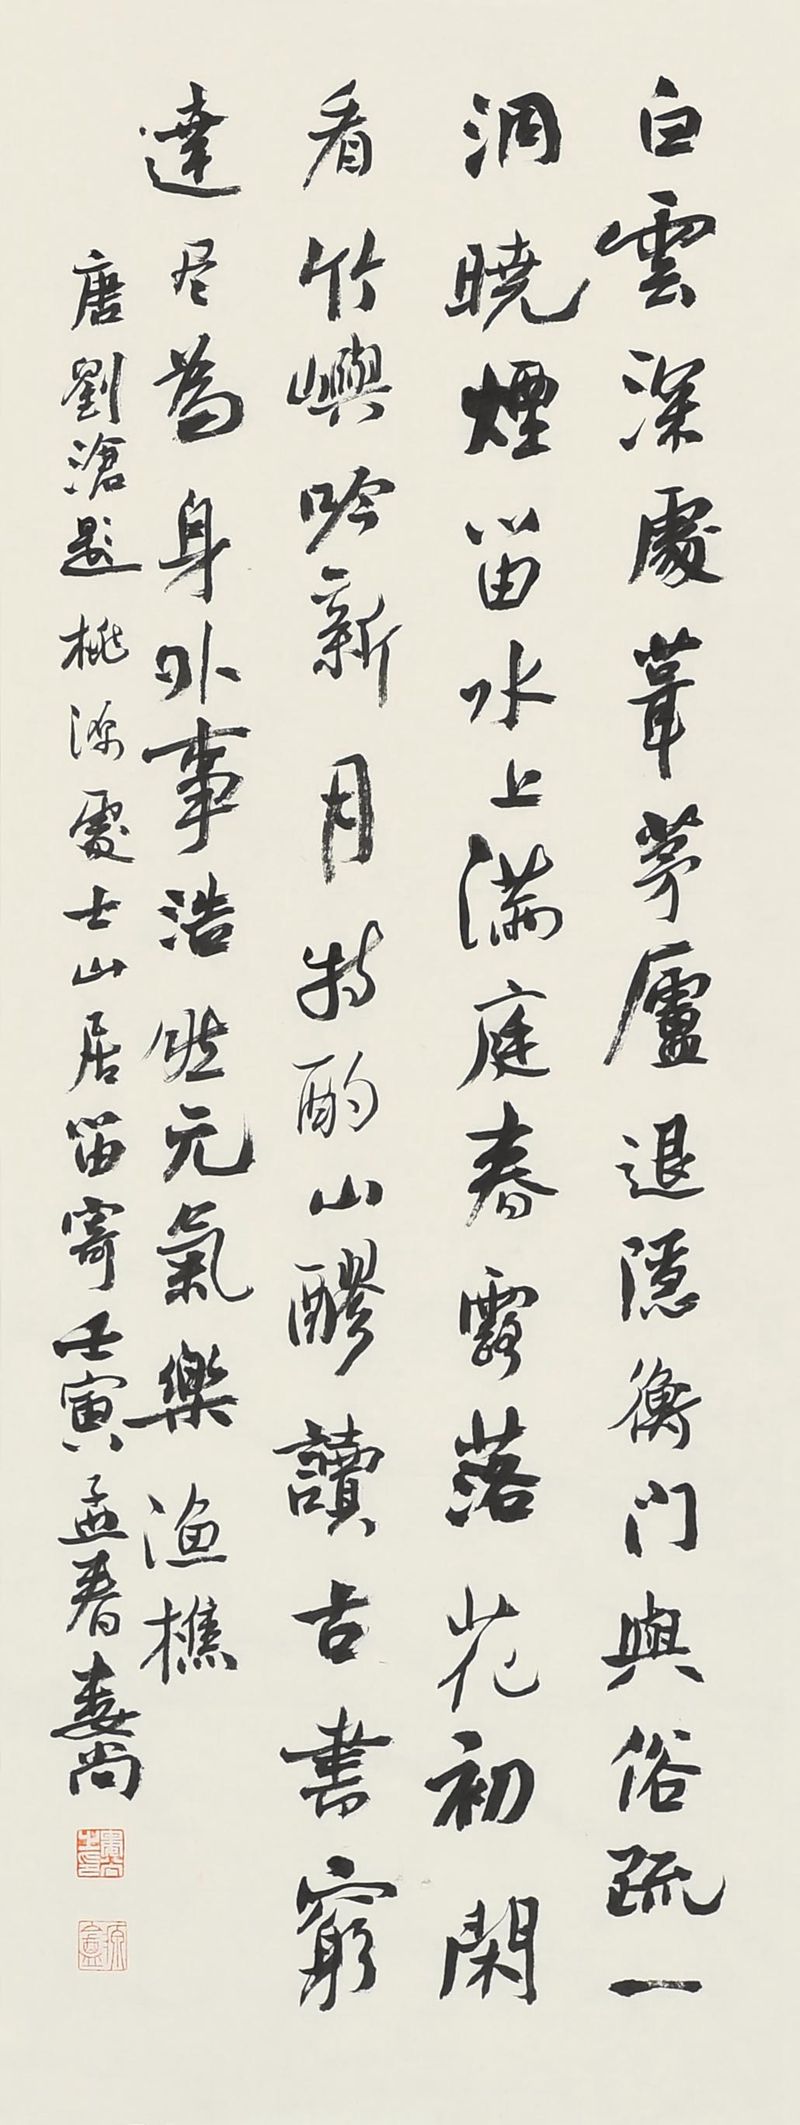 白雲深處葺茅廬退隱衡門與俗疏一
洞曉煙留水上滿庭春露落花初閑
看竹嶼吟新月特酌山醪讀古書窮
達尽為身外事浩然元氣樂漁樵
唐劉滄題桃源處士山居留寄壬寅孟春婁尚